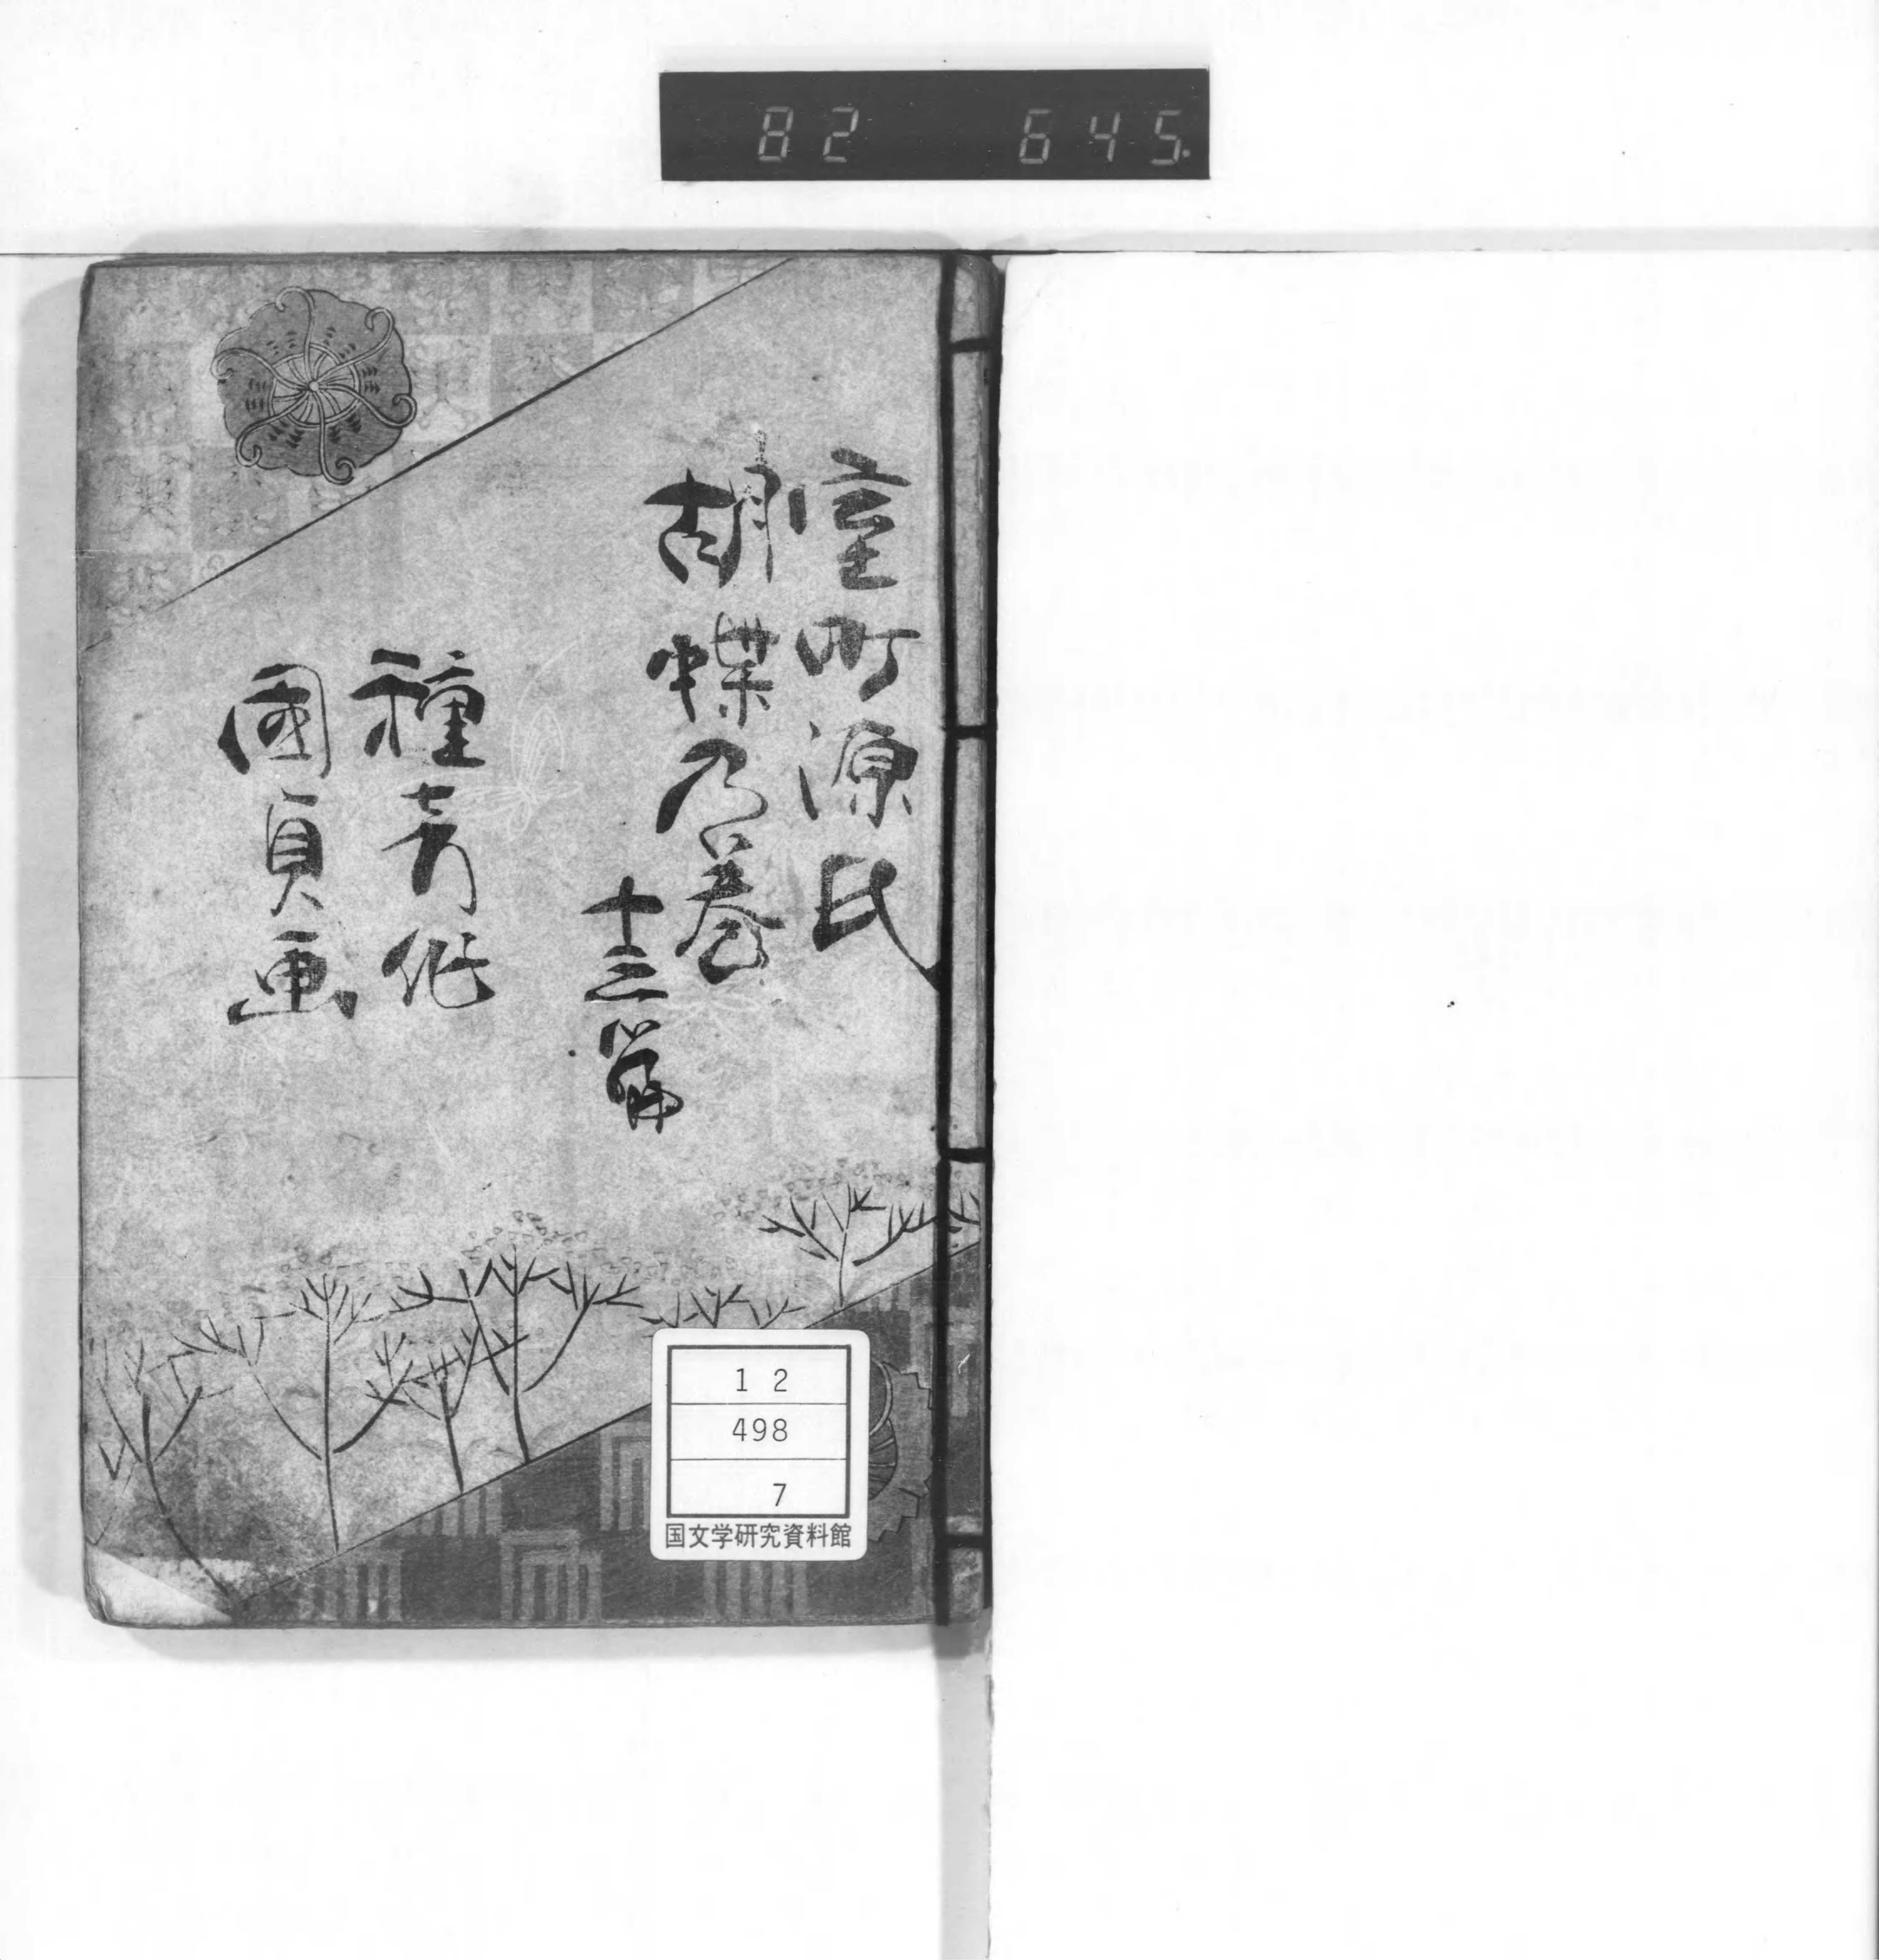 82 645.
室町源氏
胡蝶乃巻
十三篇
種彦作
國貞画
12
498
7
国文学研究資料館